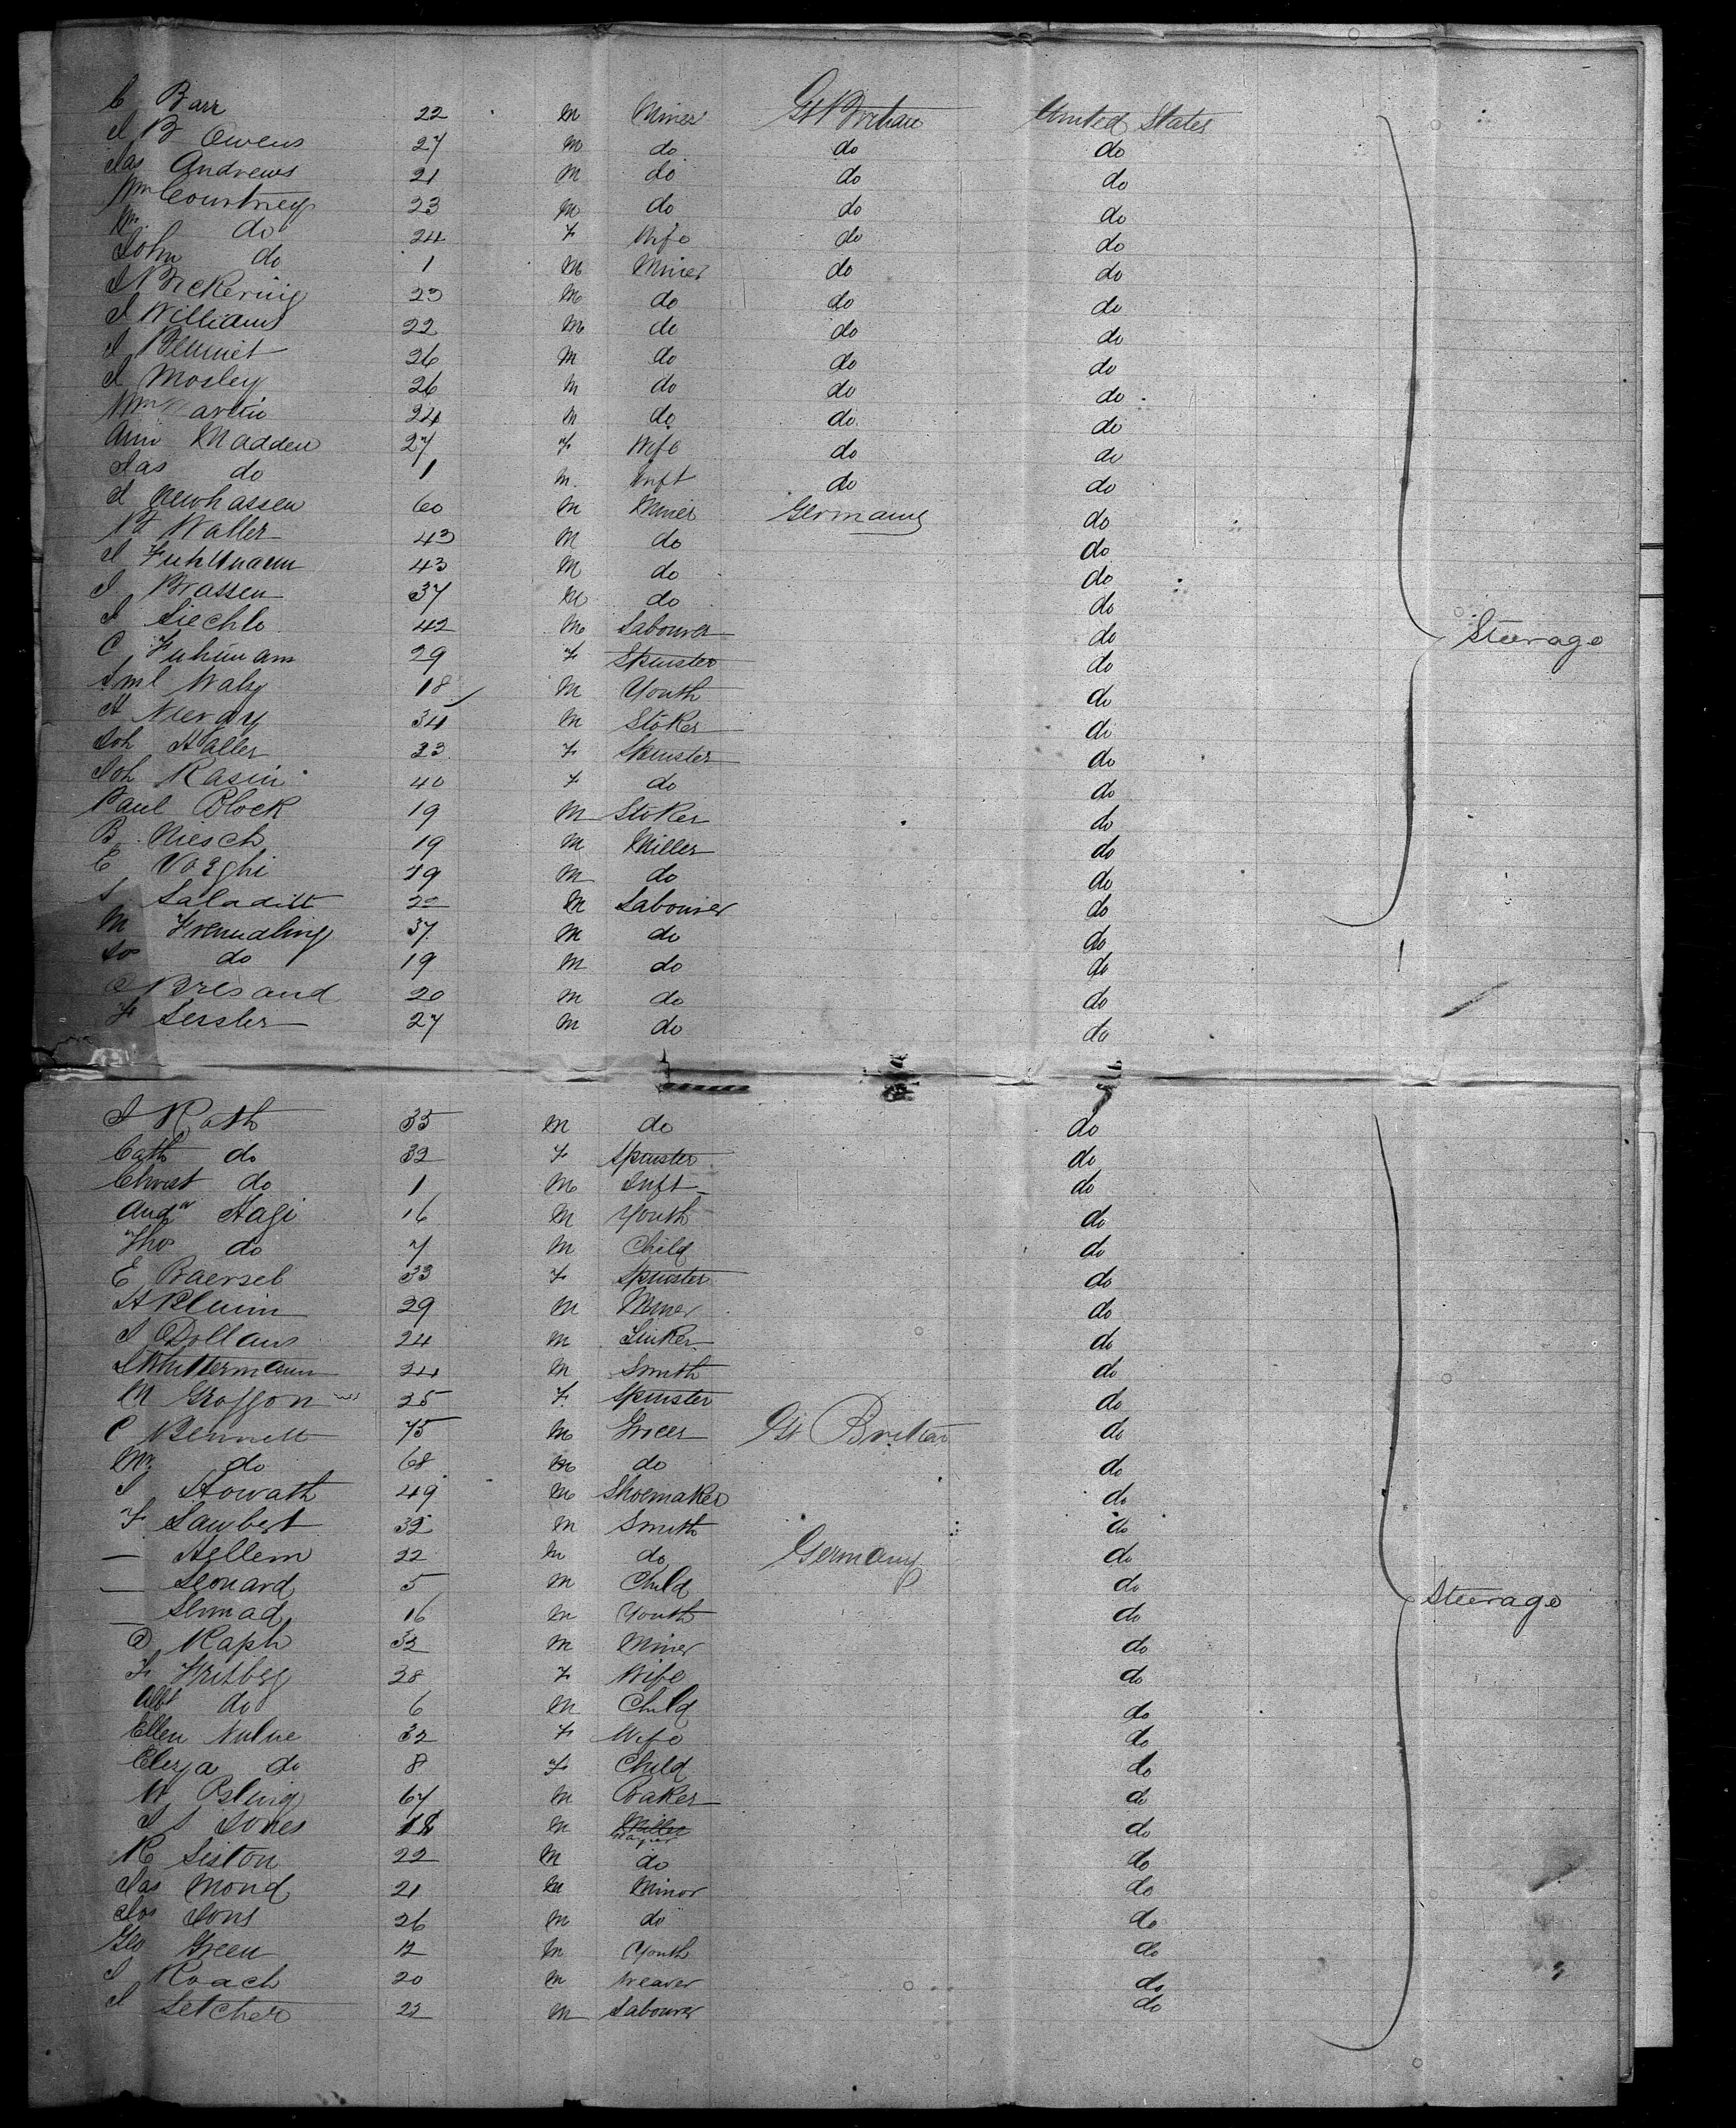 C Barr 22 m Miner Gt Britain United States
J B Owens 27 m do do do
Jas Andrews 21 m do do do
Wm Courtney 23 m do do do
M. do 24 F Wife do do
John do 1 m Miner do do
J Pickering 23 m do do do
J Williams 22 m do do do
J Bennet 26 m do do do
J Mosley 26 m do do do
Wm Martin 24 m do do do
Ann Madden 27 F Wife do do
Jas do 1 m. Inft do do
J Newhassen 60 m Miner Germany do
Waller 43 m do do
J Fuhlmann 43 m do do
J Brassen 37 m do do
J Siechle 42 m Labourer do Steerage
C Fuhlmann 29 F Spinster do
Saml Walsg 18 m Youth do
A 34 m Stoker do
Joh Haller 33 F Spinster do
Joh Rasin 40 F do do
Paul Block 19 m Stoker do
B. Niesch 19 m Miller do
E Vozghi 19 m do do
S Saladitt m Labourer do
M Fremdling 37 m do do
Jos do 19 m do do
Bresand 20 m do do
F Sessler 27 m do do
J Rath 35 m do do
Cath do 32 F Spinster do
Christ do 1 m Inft do
Andw Hagi 16 m Youth do
Thos do 7 m Child do
E Baersel 33 F Spinster do
A Blumin 29 m Miner do
J Dollans 24 m Sinker do
24 m Smith do
M Groffon 25 F. Spinster do
C Bennett 75 m Grocer Gt Britain do
Mr. do 68 m do do
J Howath 49 m Shoemaker do
F Lambert 32 m Smith do
— Hellem 22 m do Germany do
— Leonard 5 m Child do Steerage
— 16 m Youth do
D Raph 32 m Miner do
F Fritberg 28 F Wife do
Albt do 6 m Child do
Ellen Nulve 32 F Wife do
Eleza do 8 F Child do
Esling 67 m Baker do
J S Jones 18 m Miller do
R Siston 22 m do do
Jas Mond 21 m Minor do
Jos Jons 26 m do do
Geo Green 12 m Youth do
J Roach 20 m Weaver do
J Letcher 22 m Labourer do